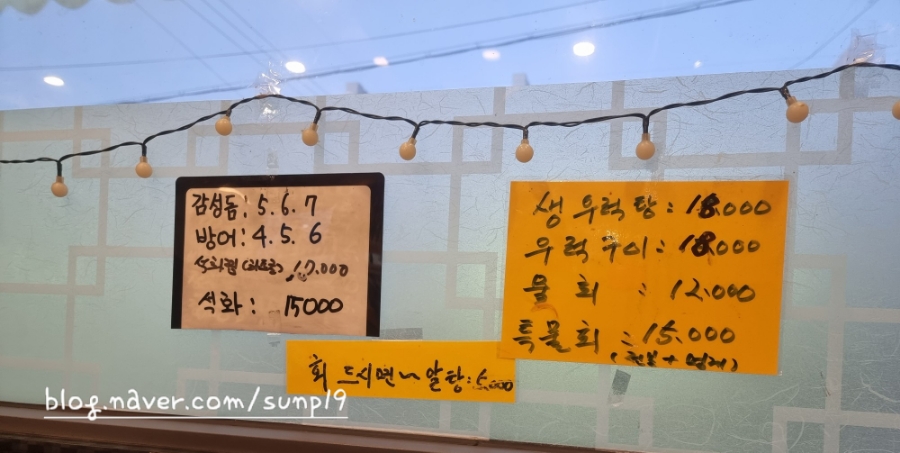 감성돔: 5. 6. 7
방어: 4. 5. 6
석화찜 17.000
석화: 15000
생우럭탕: 18.000
우럭구이: 18.000
물회: 12.000
특물회: 15.000
(전복+멍게)
회 드시면~ 알탕: 5.000
blog.naver.com/sunpl9